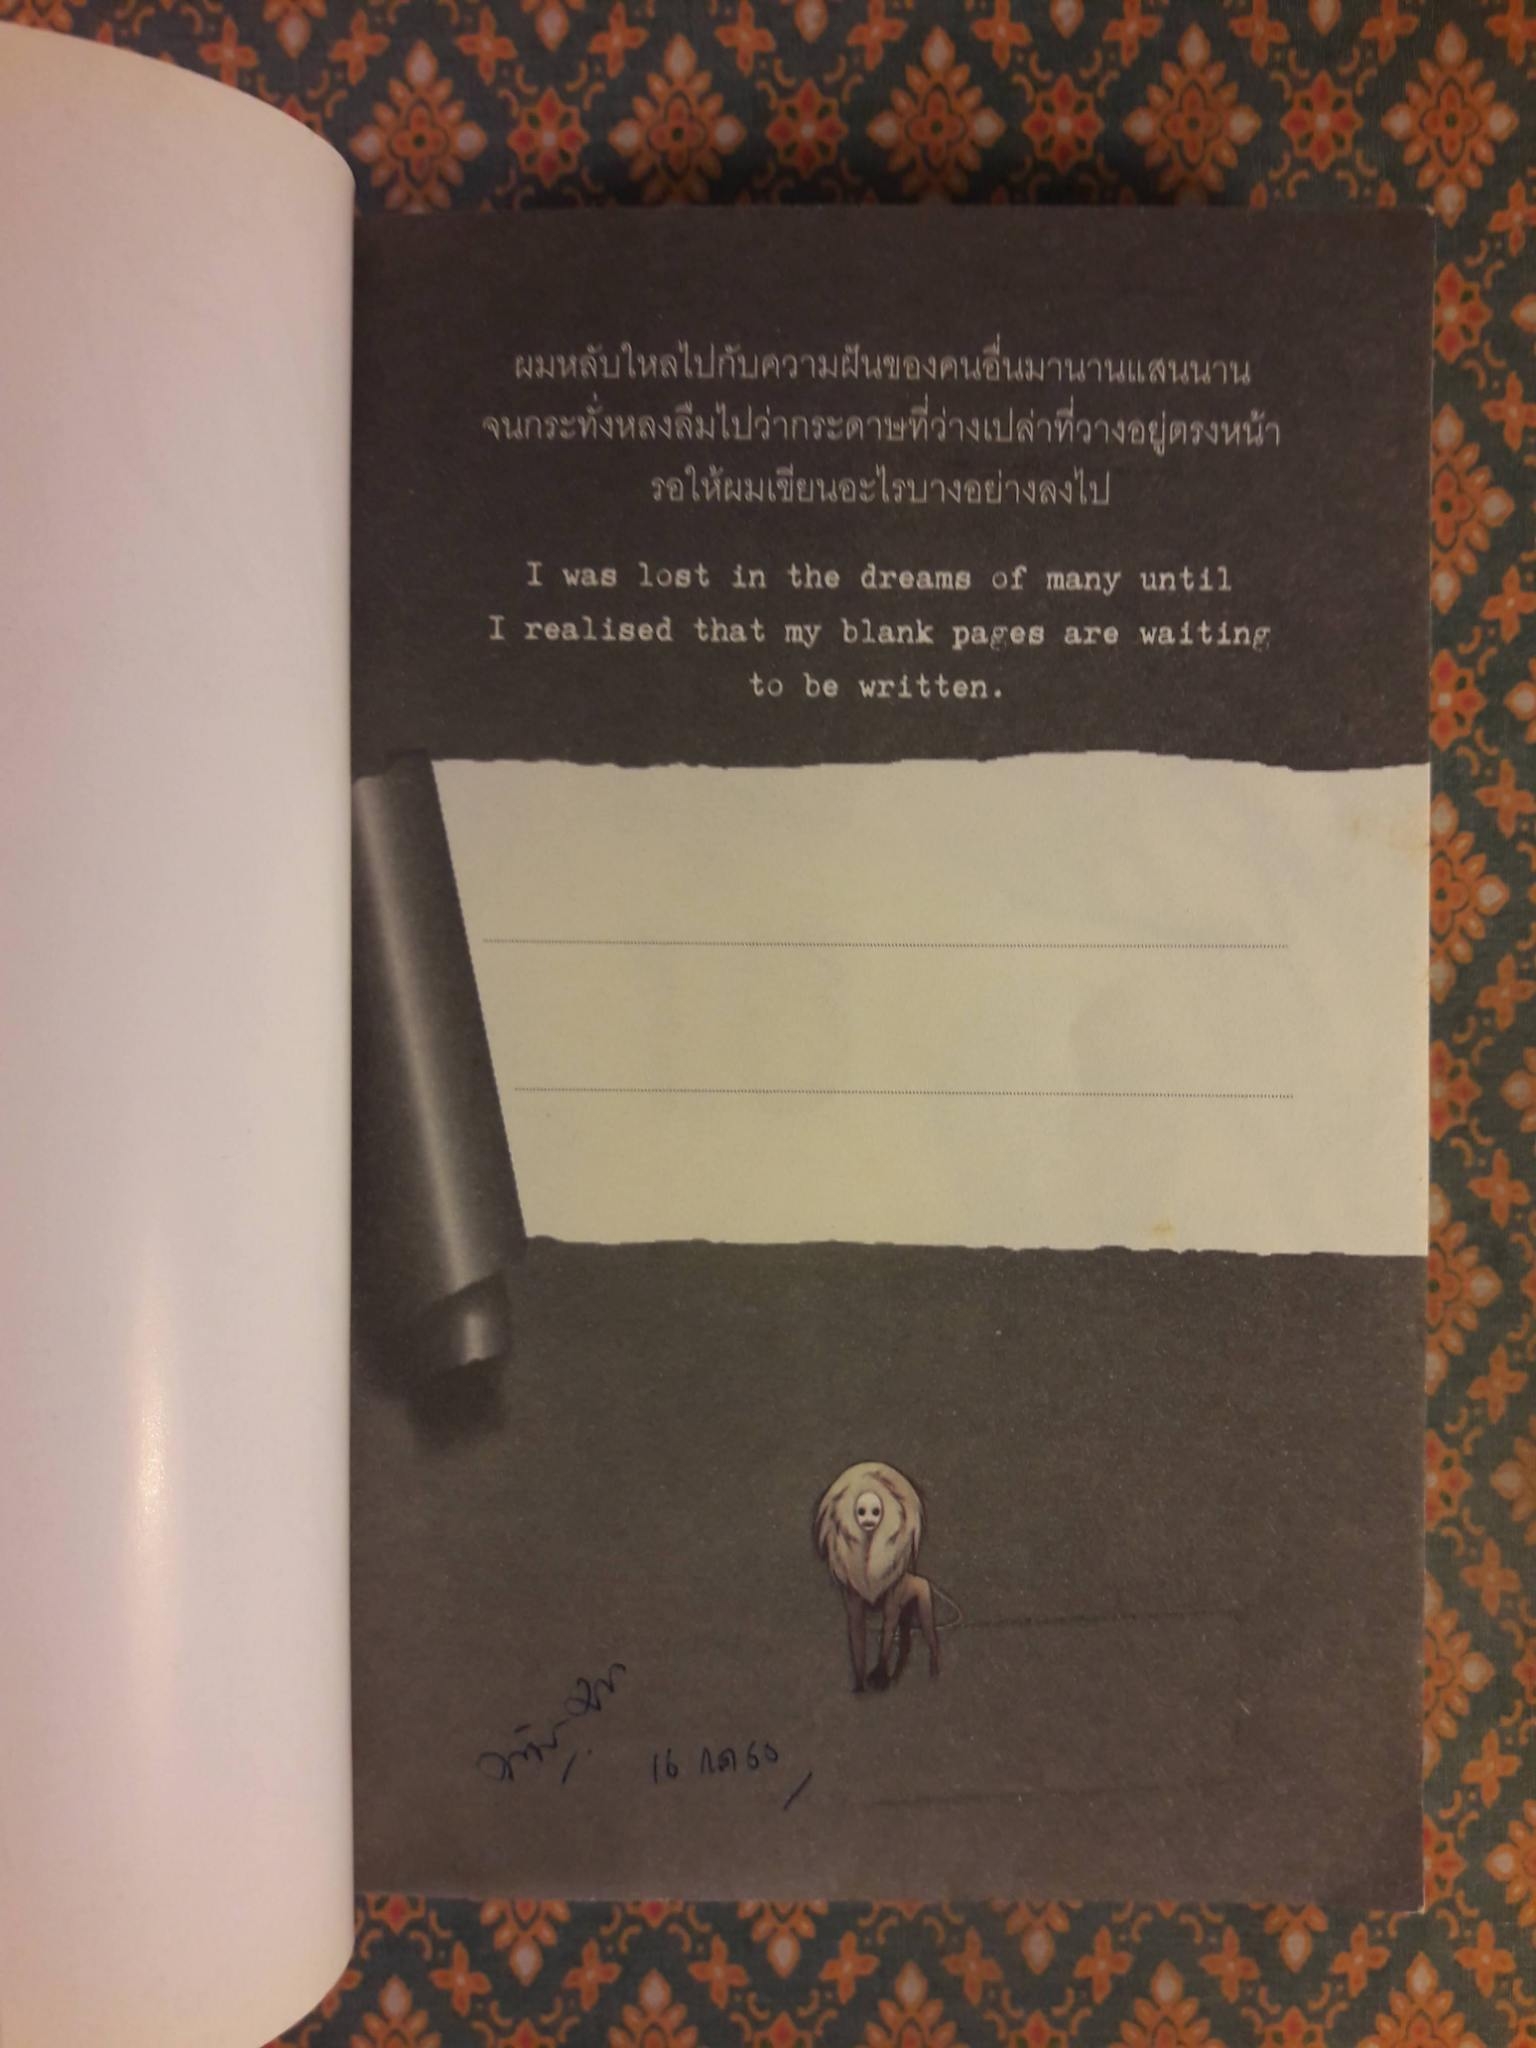 ผมหลับใหลไปกับความฝันของคนอื่นมานานแสนนาน
จนกระทั่งหลงลืมไปว่ากระดาษที่ว่างเปล่าที่วางอยู่ตรงหน้า
รอให้ผมเขียนอะไรบางอย่างลงไป
I was lost in the dreams of many until
I realised that my blank pages are waiting
to be written.
16 กค 60